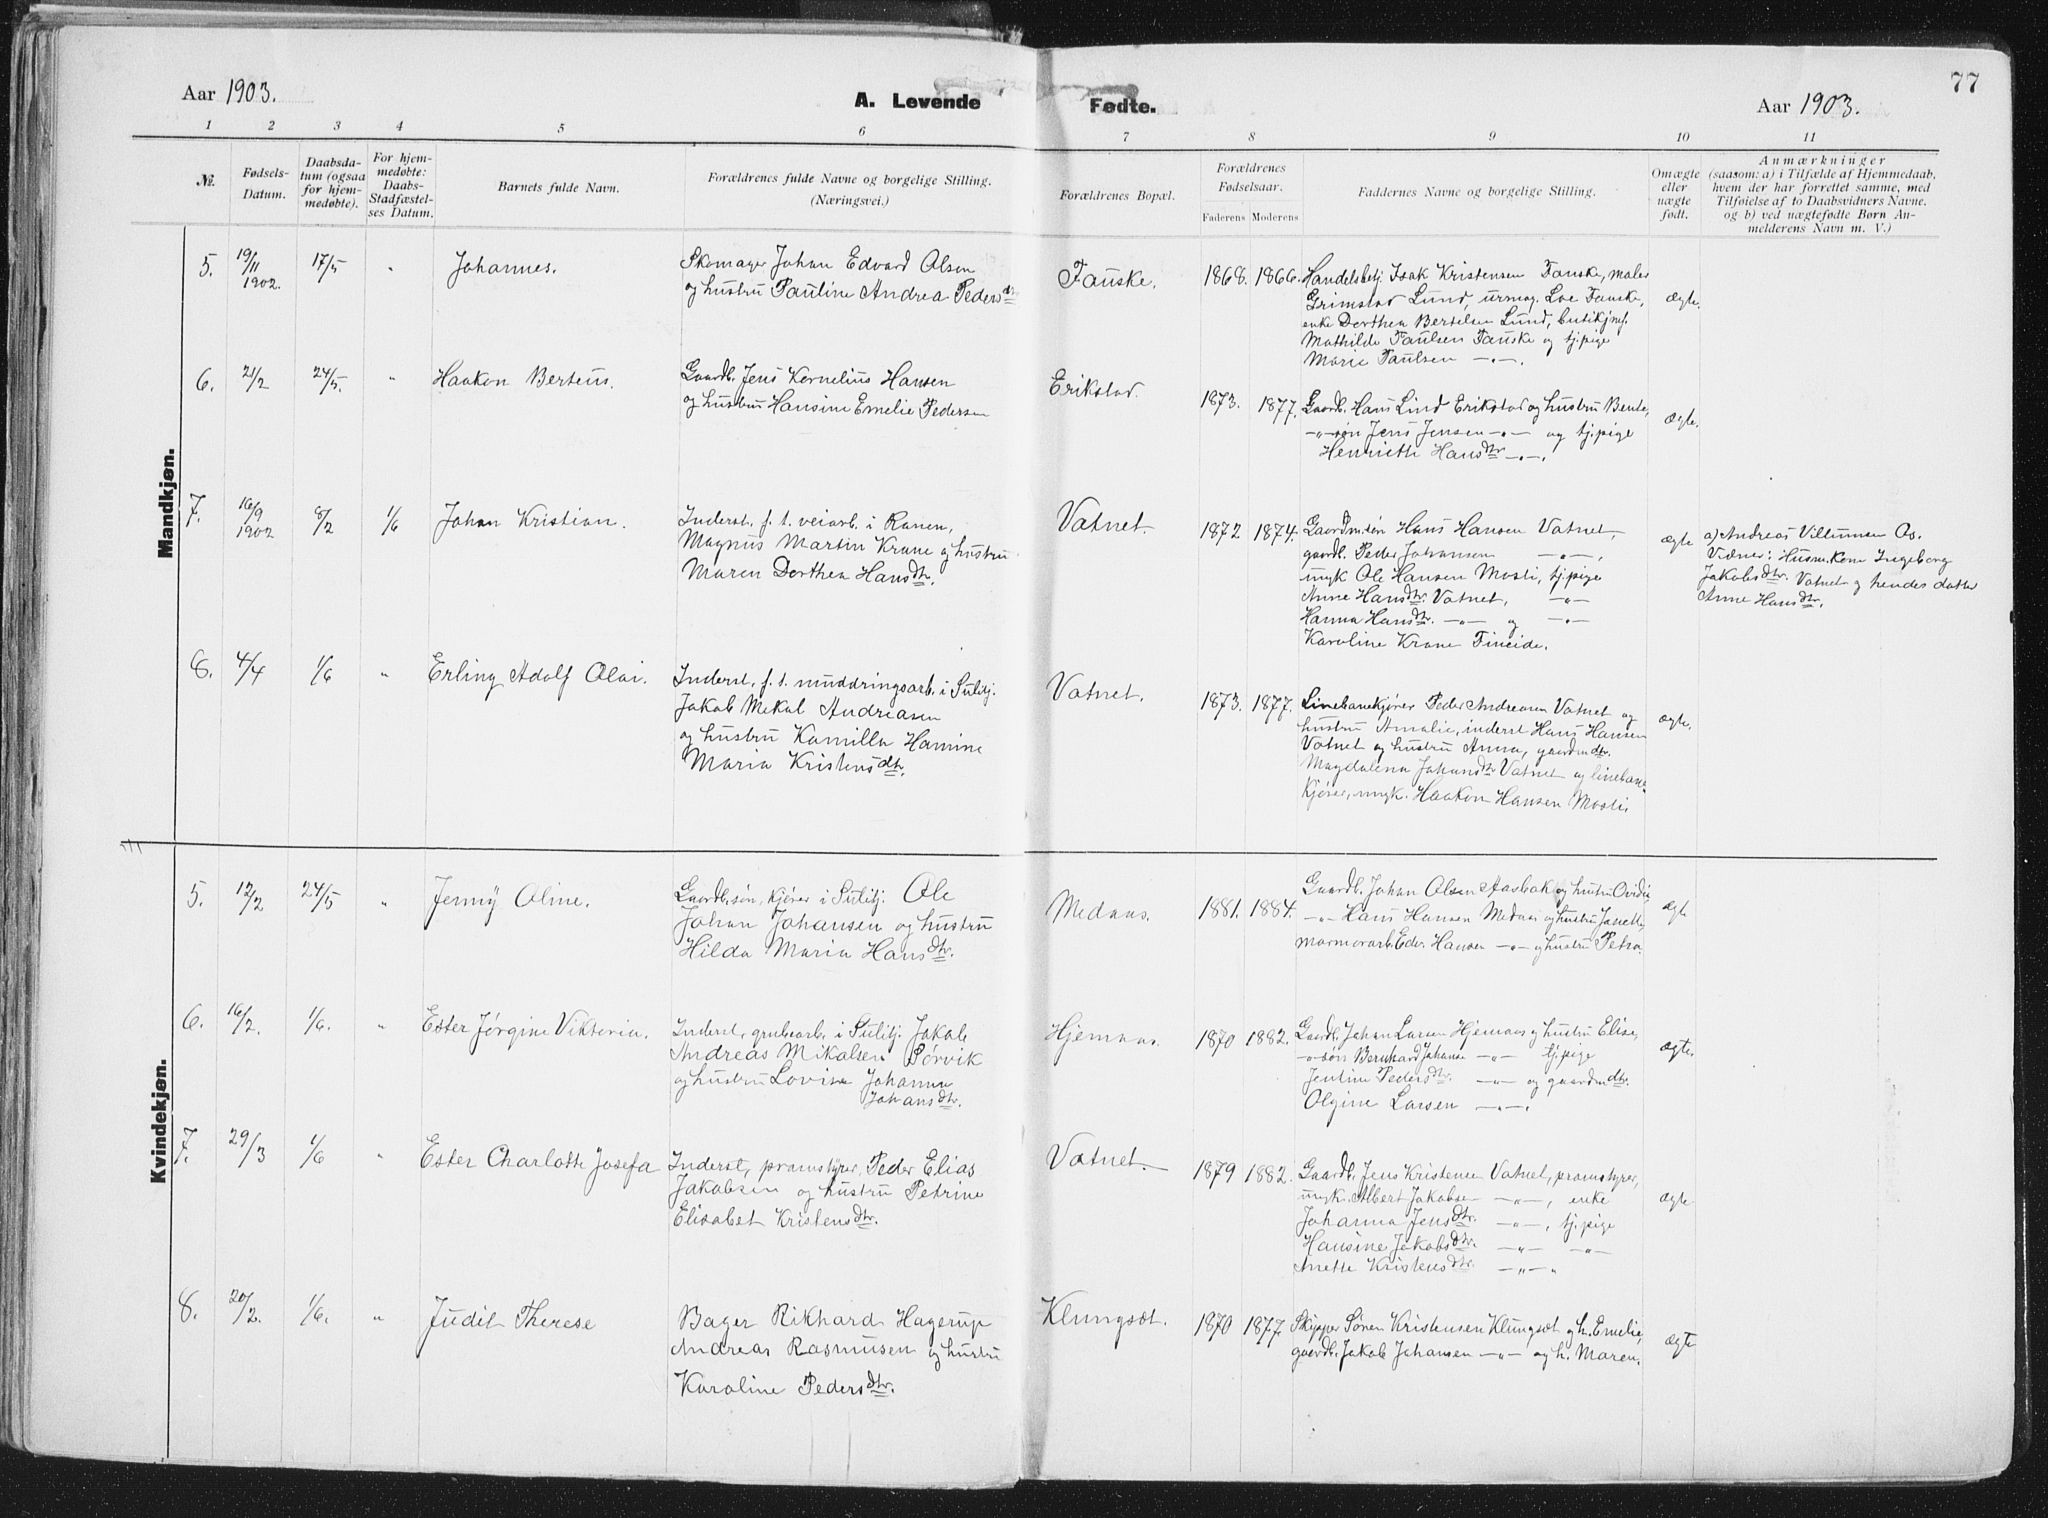 77
Aar 1903.
A. Levende Fødte.
Aar 1903.
1 2 3 4 5 6 7 8 9 10 11
№.
Fødsels-Datum.
Daabsda-tum (ogsaa for hjem-medøbte).
For hjem-medøbte: Daabs-Stadfæstel-ses Datum.
Barnets fulde Navn.
Forældrenes fulde Navne og borgelige Stilling.
(Næringsvei.)
Forældrenes Bopæl.
Forældrenes Fødselsaar.
Faderens Moderens
Faddernes Navne og borgelige Stilling.
Omægte eller uægte født.
Anmærkninger
(saasom: a) i Tilfælde af Hjemmedaab,
hvem der har forrettet samme, med
Tilføielse af to Daabsvidners Navne.
og b) ved uægtefødte Børn An-
melderens Navn m. V.)
Mandkjøn.
5. 19/11 1902. 17/5 " Johannes.
Skomager Johan Edvard Olsen
og hustru Pauline Andrea Pedersdtr
Fauske. 1868. 1866.
Handelsbetj. Isak Kristensen Fauske, maler
Grimstad Lund, urmag. Loe Fauske,
enke Dorthea Bertelsen Lund, butikjmf.
Mathilde Paulsen Fauske og tj.pige
Marie Paulsen —„—.
ægte.
6. 21/2 24/5. " Haakon Berteus.
Gaardb. Jens Kornelius Hansen
og hustru Hansine Emelie Pedersen
Erikstad. 1873. 1877.
Gaardb. Hans Lind Erikstad og hustru Bente,
—„—søn Jens Jensen —„— og tj.pige
Henriette Hansdtr —„—.
ægte.
7. 16/9 1902 8/2 1/6 Johan Kristian.
Inderst, f. t. veiarb. i Ranen,
Magnus Martin Krane og hustru
Maren Dorthea Hansdtr.
Vatnet. 1872 1874.
Gaardmsøn Hans Hansen Vatnet,
gaardb. Peder Johansen —„—,
ungk Ole Hansen Mosti, tj.pige
Anne Hansdtr. Vatnet, —„—
Hanna Hansdtr. —„— og —„—
Karoline Krane Fineide.
ægte
a) Andreas Villumsen Os.
Vidner: Husm.kone Ingeborg
Jakobsdtr. Vatnet og hendes datter
Anne Hansdtr.
8. 4/4 1/6 " Erling Adolf Olai.
Inderst, f. t. muddringsarb. i Sulitj.
Jakob Mekal Andreasen
og hustru Kamilla Hamine
Maria Kristensdtr.
Vatnet. 1873. 1877.
Linebanekjører Peder Andreasen Vatnet og
hustru Amalie, inderst Hans Hansen
Vatnet og hustru Anna, gaardmdtr.
Magdalena Johansdtr Vatnet og linebane-
kjører, ungk. Haakon Hansen Mosti.
ægte.
Kvindekjøn.
5. 12/2 24/5 " Jenny Oline.
Gaardb.søn, kjører i Sulitj. Ole
Johan Johansen og hustru
Hilda Maria Hansdtr.
Medaas. 1881. 1884.
Gaardb. Johan Olsen Aasbak og hustru Ovidia
—„— Hans Hansen Medaas og hustru Janette,
marmorarb. Edv. Hansen —„— og hustru Petra.
ægte
6. 16/2. 1/6. " Ester Jørgine Viktoria.
Inderst, grubearb. i Sulitj. Jakob
Andreas Mikalsen Sørvik
og hustru Lovise Johanna
Johansdtr.
Hjemaas. 1870 1882.
Gaardb. Johan Larsen Hjemaas og hustru Elise,
—„—søn Bernhard Johanse —„— tj.pige
Jentine Pedersdtr. —„— og gaardmdtr.
Olgine Larsen —„—.
ægte.
7. 29/3 1/6 " Ester Charlotte Josefa
Inderst, pramstyrer, Peder Elias
Jakobsen og hustru Petrine
Elisabet Kristensdtr.
Vatnet. 1879 1882.
Gaardb. Jens Kristensen Vatnet, pramstyrer,
ungk. Albert Jakobsen —„—, enke
Johanna Jensdtr. —„—, tj.pige
Hansine Jakobsdtr. —„— —„—
Anette Kristensdtr. —„—„
ægte.
8. 20/2. 1/6. " Judit Therese
Bager Rikhard Hagerup
Andreas Rasmusen og hustru
Karoline Pedersdtr.
Klungsæt. 1870 1877.
Skipper Søren Kristensen Klungsæt og h. Emelie,
gaardb. Jakob Johansen —„— og h. Maren.
ægte